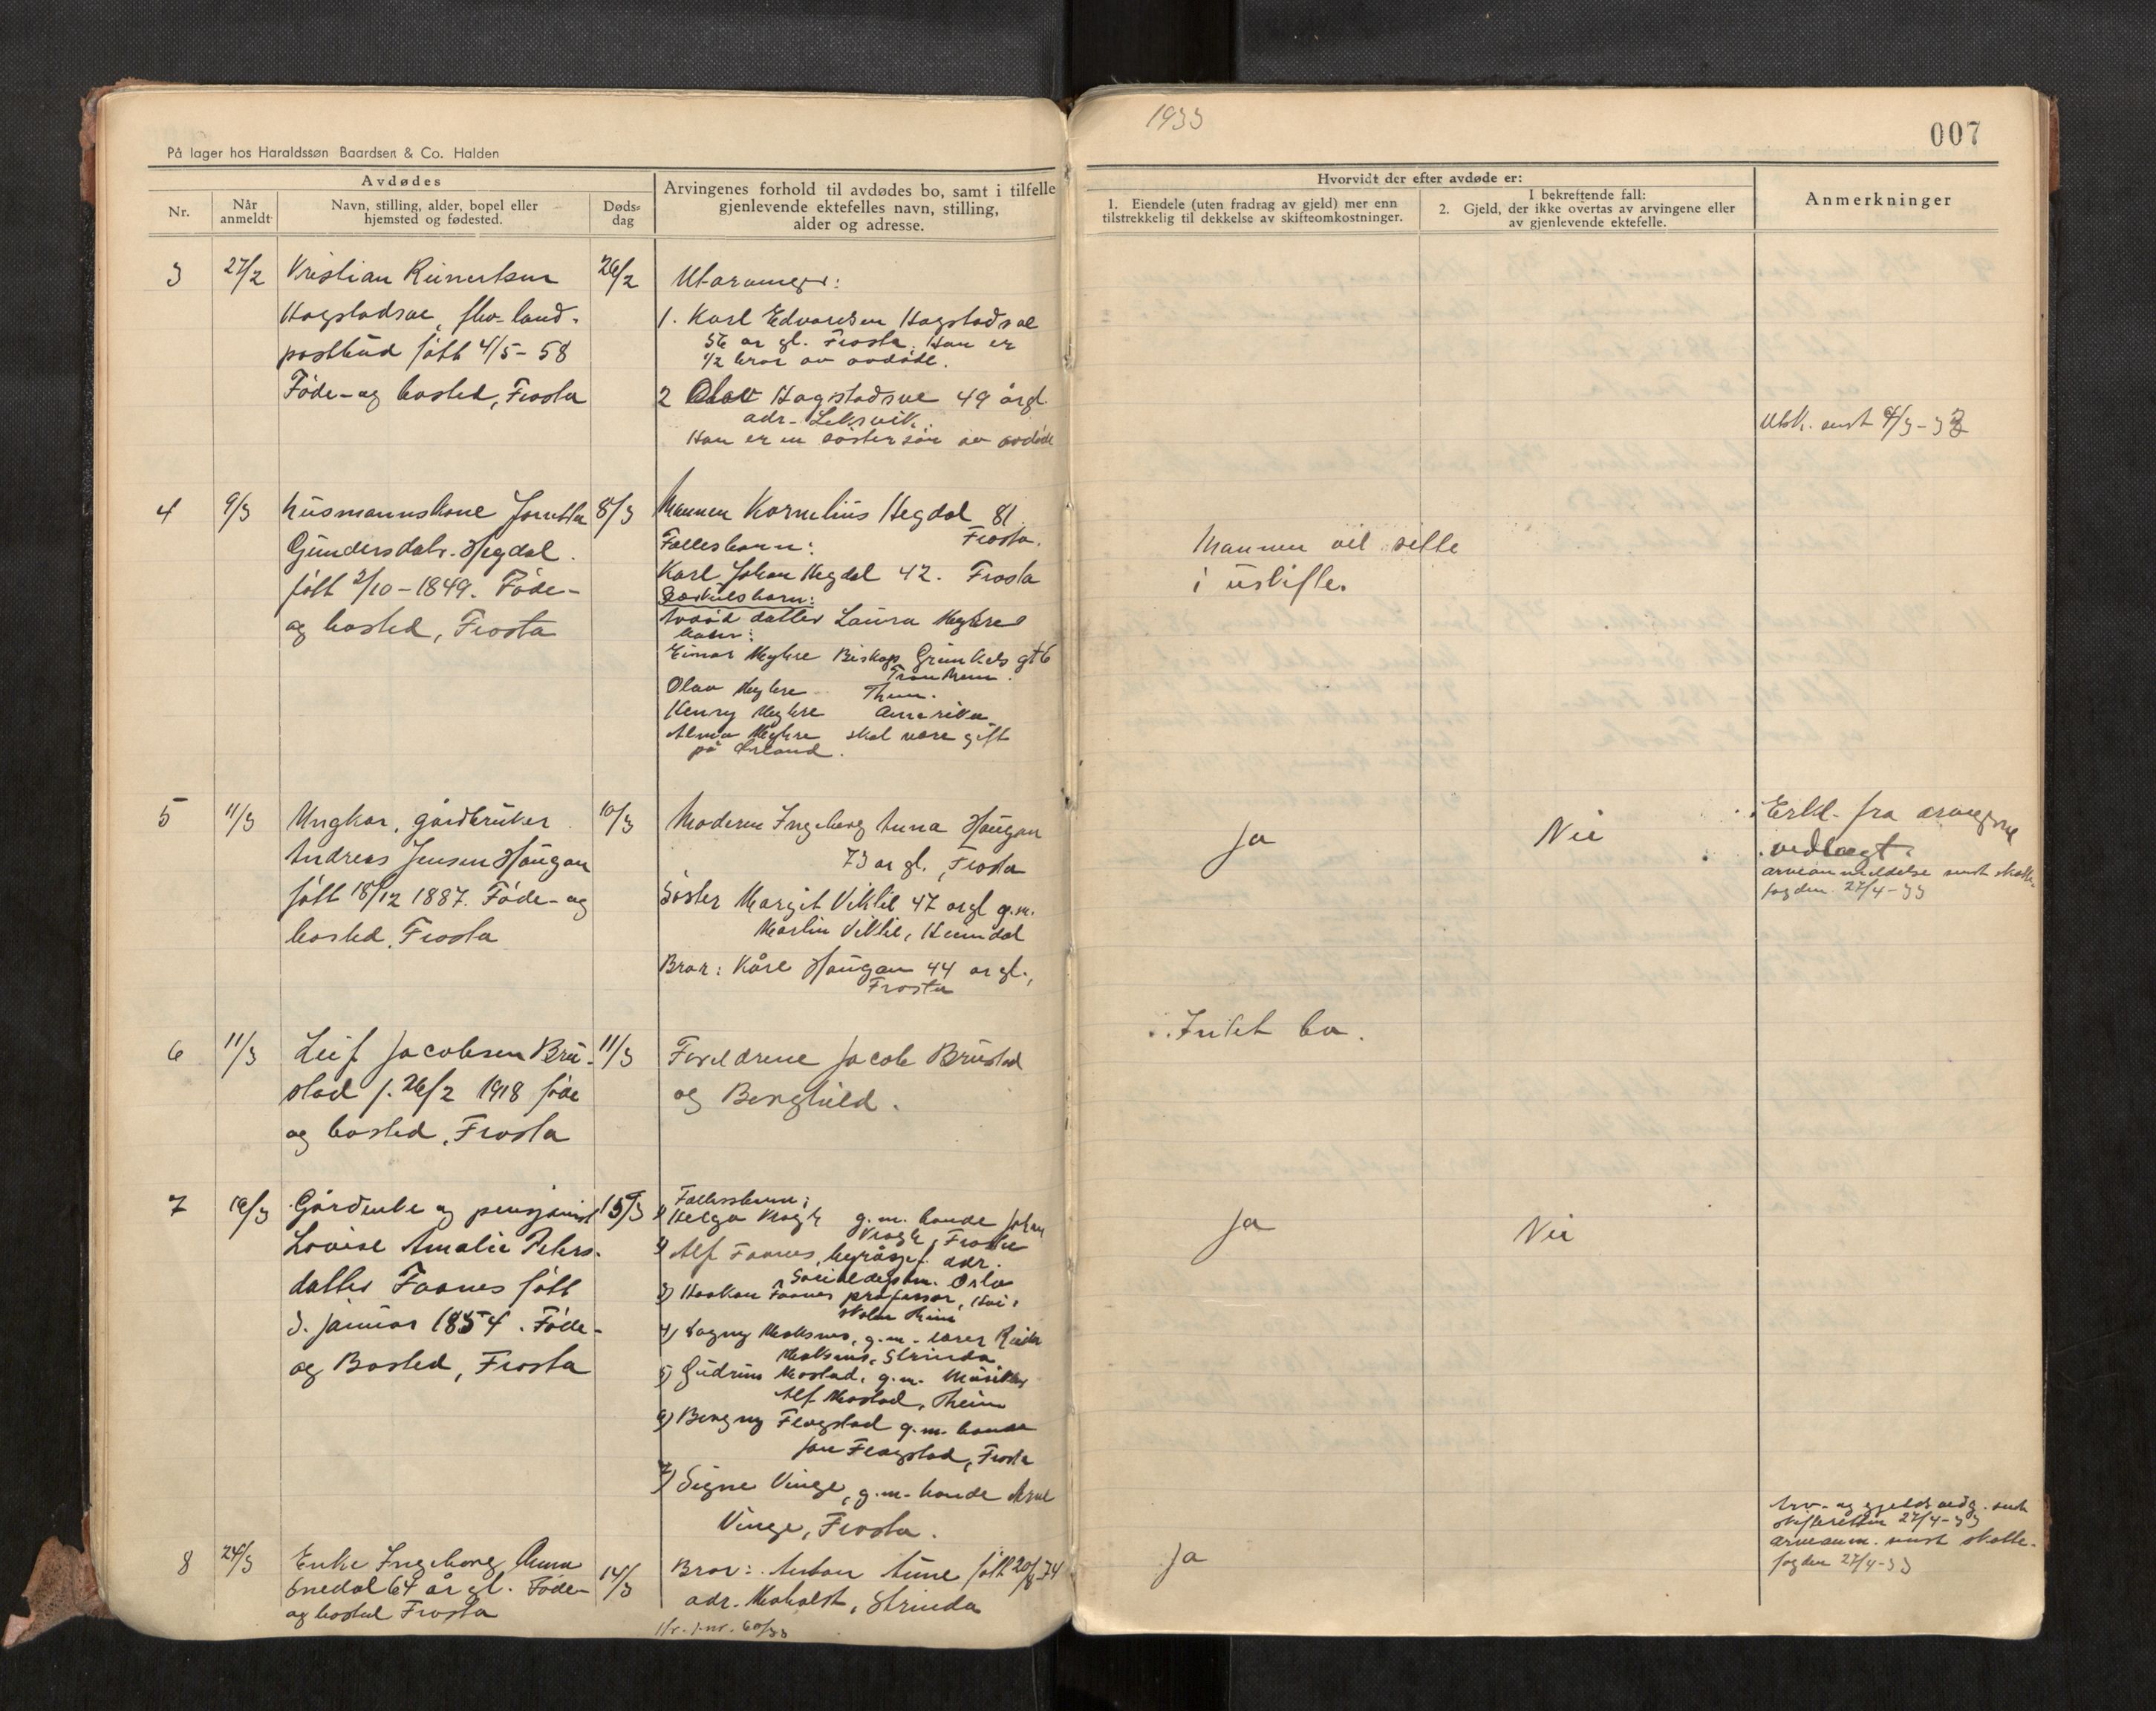 På lager hos Haraldssøn Baardsen & Co. Halden
Avdødes
Nr.
Når anmeldt
Navn, stilling, alder, bopel eller hjemsted og fødested.
Døds-dag
Arvingenes forhold til avdødes bo, samt i tilfelle
gjenlevende ektefelles navn, stilling,
alder og adresse.
3
27/2
Kristian Reinertsen
Hagstadsve, fhv. land-
postbud født 4/5-58
Føde- og bosted, Frosta
26/2
Utarvinger:
1. Karl Edvardsen Hagstadsve
56 år gl. Frosta. Han er
1/2 bror av avdøde.
2 Olav Hagstadsve 49 årgl.
adr. Leksvik.
Han er en søster søn av avdøde
4
9/3
Husmannskone
Gundersdatr. Hegdal.
født 2/10-1849. Føde-
og bosted, Frosta
8/3
Mannen Kornelius Hegdal 81
Frosta.
Fellesbarn:
Karl Johan Hegdal 42. Frosta
Særkulsbarn:
Avdød datter Laura Myhre
barn:
Einar Myhre Biskop gt 6
Trondheim.
Olav Myhre Thm.
Henry Myhre Amerika
Alma Myhre skal være gift
på Ørland.
5
11/3
Ungkar, gårdbruker
Andreas Jensen Haugan
født 18/12 1887. Føde- og
bosted, Frosta
10/3
Moderen Ingeborg Anna Haugan
73 år gl., Frosta
Søster Margit Viktil 47 årgl g.m.
Martin Viktil, Heimdal
Bror: Kåre Haugan 44 år gl.,
Frosta
6
11/3
Leif Jacobsen Bru-
stad f. 26/2 1918 føde
og bosted, Frosta
11/3
Foreldrene Jacob Brustad
og Berghild.
7
16/3
Gårdenke og pensjonist
Lovise Amalie Peters-
datter Faanes født
3. januar 1854. Føde-
og Bosted, Frosta
15/3
Fellesbarn:
1) Helga g.m. bonde Johan
Frosta
2) Alf Faanes, adr.
Socialdepm. Oslo
3) Haakon Faanes professor, Høi-
skolen Thm
4) Dagny Moksnes, g.m. lærer
Moksnes, Strinda
5) Gudrun Mostad, g.m.
Alf Mostad, Theim
6) Bergny Flagstad g.m. bonde
Jon Flagstad, Frosta
7) Signe Vinge, g.m. bonde Arne
Vinge, Frosta.
8
24/3
Enke Ingeborg Anna
64 år gl. Føde-
og bosted Frosta
14/3
Bror: Anton Aune født
adr. Moholt, Strinda
j.nr. 60/33
1933
007
Hvorvidt der efter avdøde er:
1. Eiendele (uten fradrag av gjeld) mer enn
tilstrekkelig til dekkelse av skifteomkostninger.
I bekreftende fall:
2. Gjeld, der ikke overtas av arvingene eller
av gjenlevende ektefelle.
Anmerkninger
Utsk. sendt
Mannen vil sitte
i uskifte.
Ja
Nei
Erkl. fra arvingene
vedlagt.
arveanmeldelse sendt skatte-
fogden 27/4-33
Intet bo.
Ja
Nei
Arv- og gjelds vedg. sendt
skifteretten 27/4-33
arveanm. sendt skatte-
fogden 27/4-33
Ja